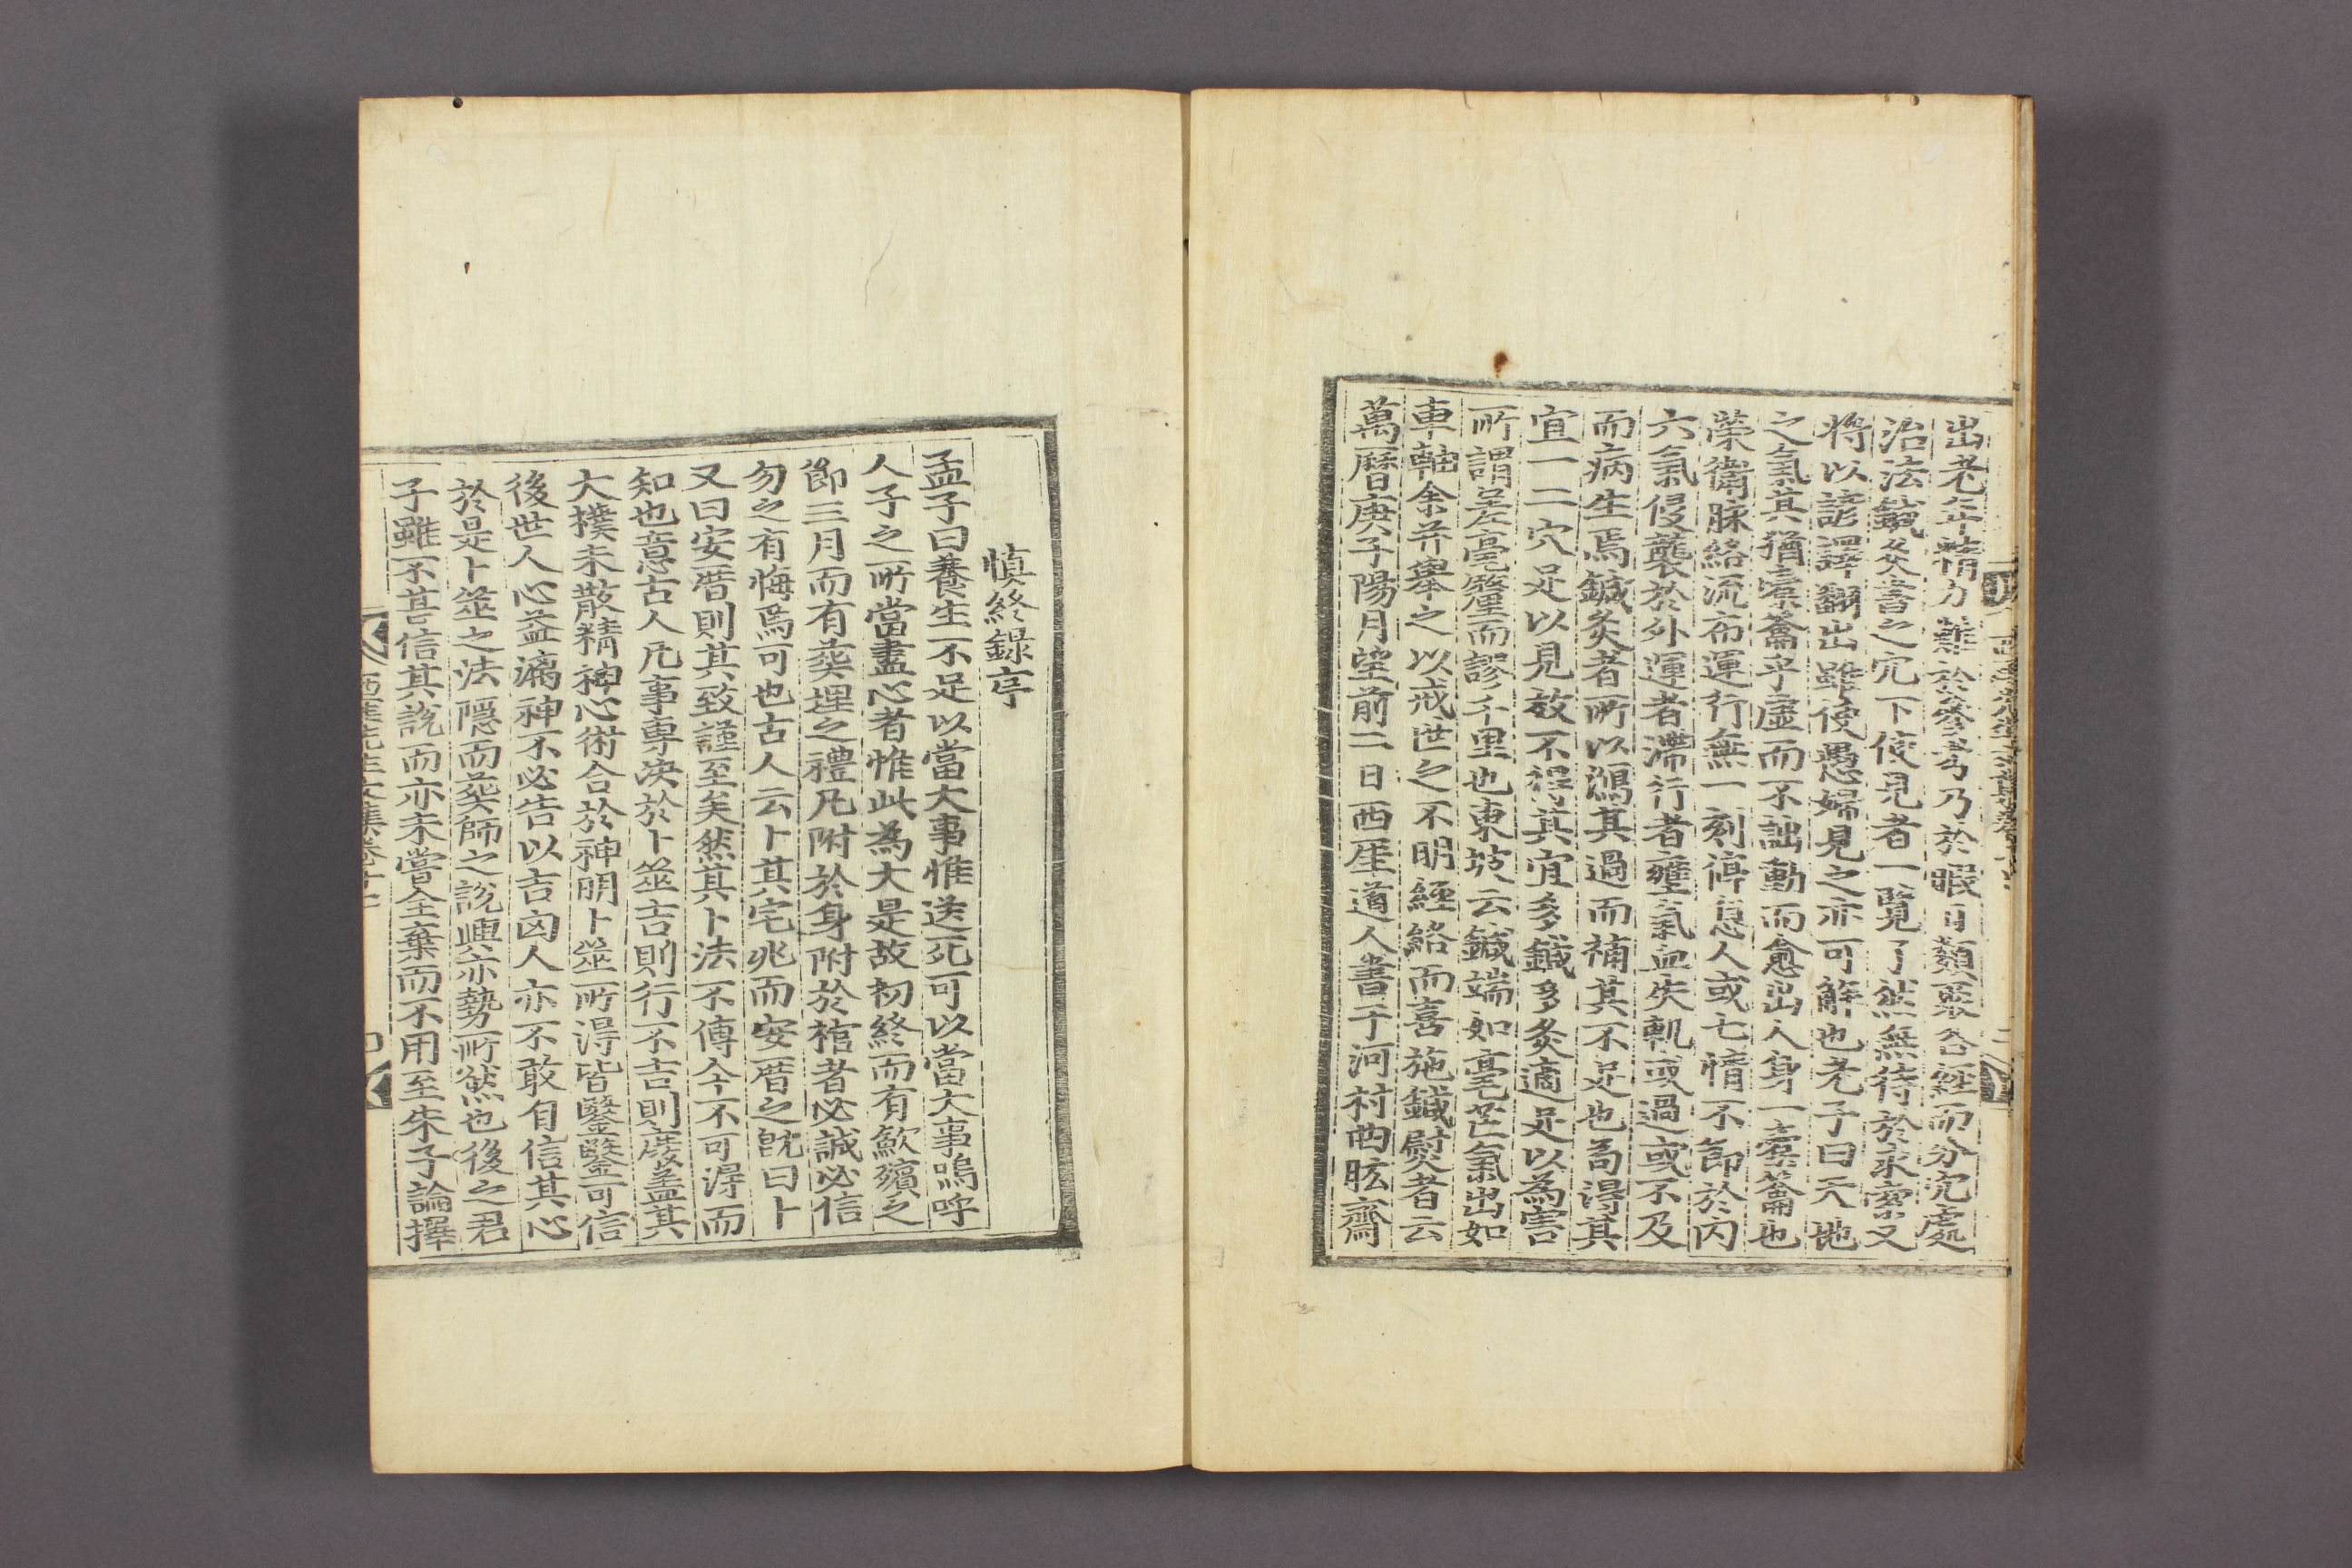 出老年精力難於參考乃於暇日類聚各經而分穴處
治法鍼灸書之穴下使見者一覽了然無待於求索又
將以諺譯翻出雖使愚婦見之亦可解也老子曰天地
之氣其猶槖籥乎虛而不詘動而愈出人身一槖籥也
榮衛脉絡流布運行無一刻停息人或七情不節於內
六氣侵襲於外運者滯行者壅氣血失軌或過或不及
而病生焉鍼灸者所以瀉其過而補其不足也苟得其
宜一二穴足以見效不得其宜多鍼多灸適足以為害
所謂差毫釐而謬千里也東坡云鍼端如毫芒氣出如
車軸余幷擧之以戒世之不明經絡而喜施鍼熨者云
萬曆庚子陽月望前二日西厓道人書于河村兩眩齋
愼終錄序
孟子曰養生不足以當大事惟送死可以當大事嗚呼
人子之所當盡心者惟此為大是故初終而有歛殯之
節三月而有葬埋之禮凡附於身附於棺者必誠必信
勿之有悔焉可也古人云卜其宅兆而安厝之旣曰卜
又曰安厝則其致謹至矣然其卜法不傳今不可得而
知也意古人凡事專决於卜筮吉則行不吉則廢盖其
大樸未散精神心術合於神明卜筮所得皆鑿鑿可信
後世人心益漓神不必告以吉凶人亦不敢自信其心
於是卜筮之法隱而葬師之說興亦勢所然也後之君
子雖不甚信其說而亦未嘗全棄而不用至朱子論擇
西厓先生文集卷十七
四